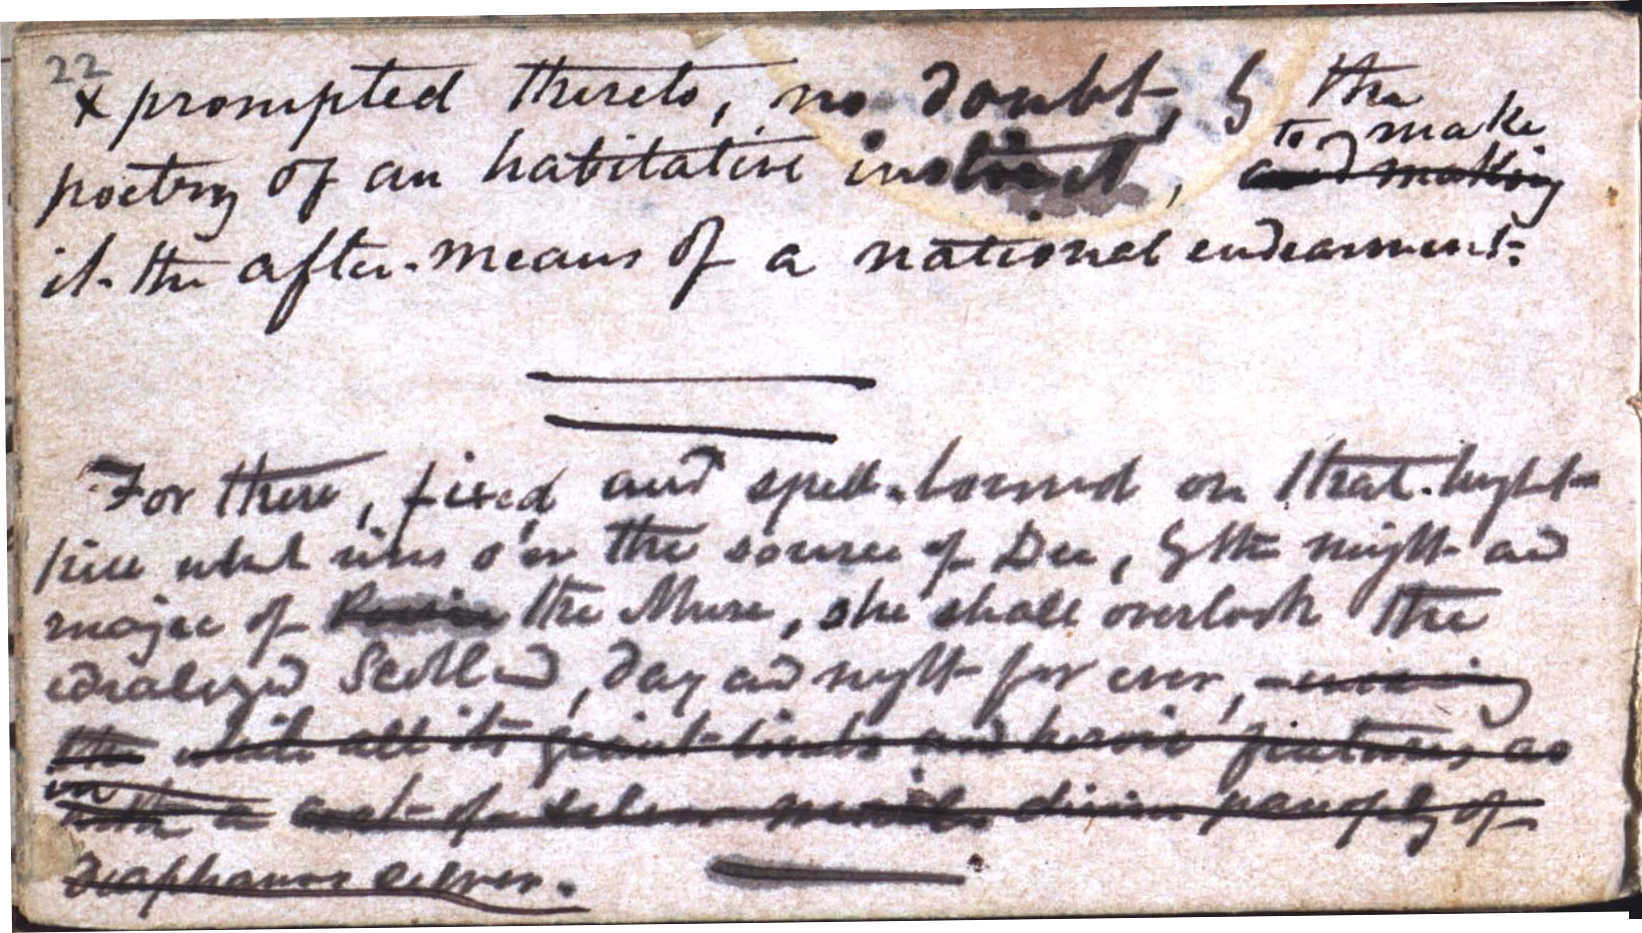 22
x prompted thereto, no doubt, by the
to make
poetry of an habitative instinct, and making
it the after-means of a national endearment:
For there, fixed and spell-bound on that height-
hill what rises o'er the source of Dee, by the might and
magic of the Muse, she shall overlook the
idealized Scotland, day and night for ever,
the while all its giant-limbs and heroic features as
in
with a coat of silver divine panoply of
diaphanous silver.